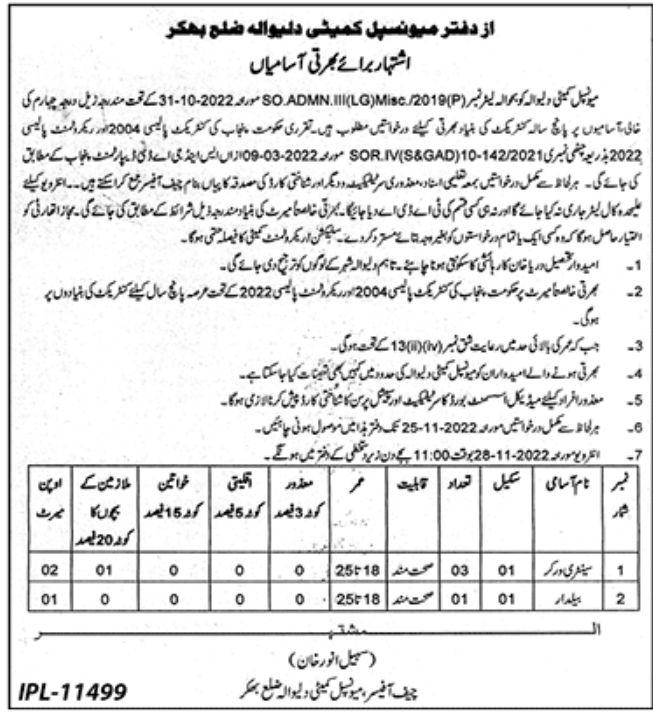 از دفتر میونسپل کمیٹی دلیوالہ ضلع بھکر
اشتہار برائے بھرتی آسامیاں
میونسپل کمیٹی دلیوالہ کو بحوالہ لیٹر نمبر SO.ADMN.III(LG)Misc./2019(P) مورخہ 31-10-2022 کے تحت مندرجہ ذیل درجہ چہارم کی
خالی آسامیوں پر پانچ سالہ کنٹریکٹ کی بنیاد بھرتی کیلئے درخواستیں مطلوب ہیں۔ تقرری حکومت پنجاب کی کنٹریکٹ پالیسی 2004 اور ریکروٹمنٹ پالیسی
2022 بذریعہ چٹھی نمبری SOR.IV(S&GAD)10-142/2021 مورخہ 09-03-2022 ازاں ایس اینڈ جی اے ڈی ڈیپارٹمنٹ پنجاب کے مطابق
کی جائے گی۔ ہر لحاظ سے مکمل درخواستیں بمعہ تعلیمی اسناد، معذوری سرٹیفکیٹ و دیگر اور شناختی کارڈ کی مصدقہ کاپیاں بنام چیف آفیسر جمع کرا سکتے ہیں۔ انٹرویو کیلئے
علیحدہ کال لیٹر جاری نہ کیا جائے گا اور نہ ہی کسی قسم کی ٹی اے ڈی اے دیا جائیگا۔ بھرتی خالصتاً میرٹ کی بنیاد مندرجہ ذیل شرائط کے مطابق کی جائے گی۔ مجاز اتھارٹی کو
اختیار حاصل ہو گا کہ وہ کسی ایک یا تمام درخواستوں کو بغیر وجہ بتائے مسترد کر دے۔ سلیکشن / ریکروٹمنٹ کمیٹی کا فیصلہ حتمی ہو گا۔
1۔ امیدوار تحصیل دریا خان کا رہائشی / سکونتی ہونا چاہئے۔ تاہم دلیوالہ شہر کے لوگوں کو ترجیح دی جائے گی۔
2۔ بھرتی خالصتاً میرٹ پر حکومت پنجاب کی کنٹریکٹ پالیسی 2004 اور ریکروٹمنٹ پالیسی 2022 کے تحت عرصہ پانچ سال کیلئے کنٹریکٹ کی بنیادوں پر
ہو گی۔
3۔ جب کہ عمر کی بالائی حد میں رعایت شق نمبر 13(ii)(iv) کے تحت ہو گی۔
4۔ بھرتی ہونے والے امیدواران کو میونسپل کمیٹی دلیوالہ کی حدود میں کہیں بھی تعینات کیا جا سکتا ہے۔
5۔ معذور افراد کیلئے میڈیکل اسسمنٹ بورڈ کا سرٹیفکیٹ اور سپیشل پرسن کا شناختی کارڈ پیش کرنا لازمی ہو گا۔
6۔ ہر لحاظ سے مکمل درخواستیں مورخہ 25-11-2022 تک دفتر ہذا میں موصول ہونی چاہئیں۔
7۔ انٹرویو مورخہ 28-11-2022 بوقت 11:00 بجے دن زیر دستخطی کے دفتر میں ہونگے۔
نمبر شمار نام آسامی سکیل تعداد قابلیت عمر معذور کوٹہ 3 فیصد اقلیتی کوٹہ 5 فیصد خواتین کوٹہ 15 فیصد ملازمین کے بچوں کا کوٹہ 20 فیصد اوپن میرٹ
1 سینٹری ورکر 01 03 صحت مند 18 تا 25 0 0 0 01 02
2 بیلدار 01 01 صحت مند 18 تا 25 0 0 0 0 01
المشتہر
(سہیل انور خان)
چیف آفیسر، میونسپل کمیٹی دلیوالہ ضلع بھکر
IPL-11499